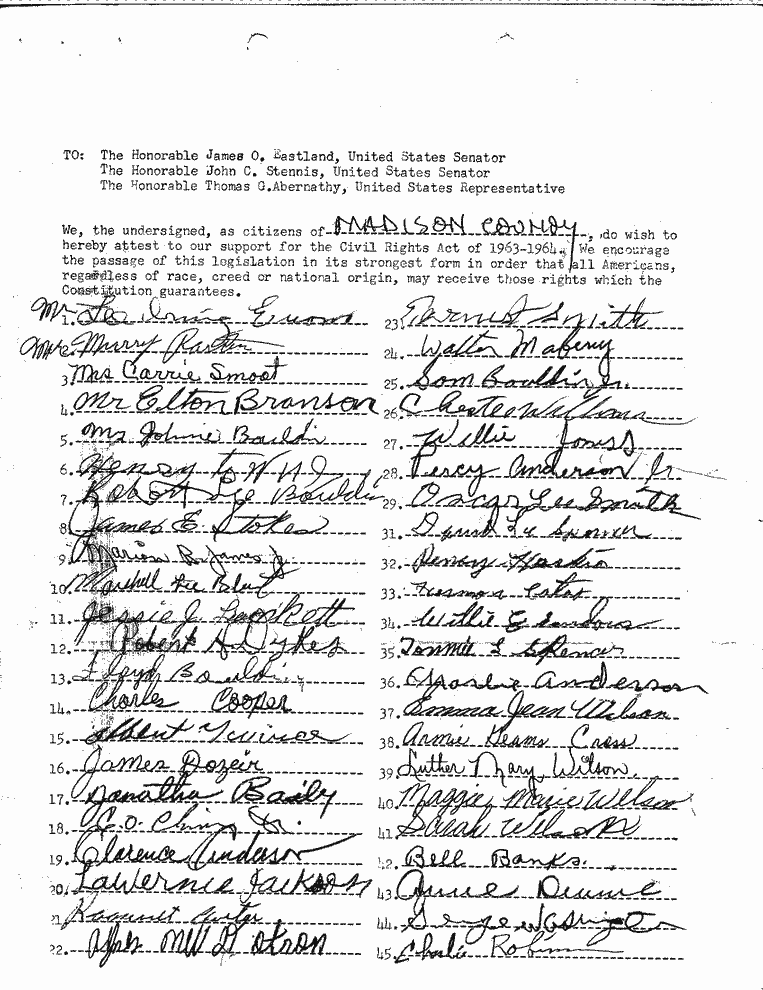 TO: The Honorable James O. Eastland, United States Senator
The Honorable John C. Stennis, United States Senator
The Honorable Thomas G.Abernathy, United States Representative
We, the undersigned, as citizens of MADISON COUNDY, do wish to
hereby attest to our support for the Civil Rights Act of 1963-1964. We encourage
the passage of this legislation in its strongest form in order that all Americans,
regardless of race, creed or national origin, may receive those rights which the
Constitution guarantees.
Mr
1.
Mrs
3. Mrs Carrie Smoot
4. Mr Elton Branson
5. Johnie
6. Henry
7. Robert Lee Bouldin
8. James E. Stokes
9. Marion R. James Jr
10. Marshall
11. Jessie J. Lockett
12. Robert H Dykes
13. Floyd
14. Charles Cooper
15. Albert
16. James Dozeir
17. Janatha Basily
18. C.O. Chinn Jr.
19. Clarence Anderson
20. LaWernce Jackson
21
22.
23. Earnest Smith
24. Walter Maberry
25. Sam Bouldin Jr.
26. Chester Williams
27. Willie Jones
28. Percy Anderson Jr
29. Oscar Lee Smith
31. Lee
32.
33.
34. Willie
35. Tommie L Spencer
36. Anderson
37. Emma Jean Wilson
38. Annie Cross
39. Luther Mary Wilson.
40. Maggie Marie Welson
41. Sarah Welson
42. Bell Banks.
43. Annie
44. George Washington
45. Charlie